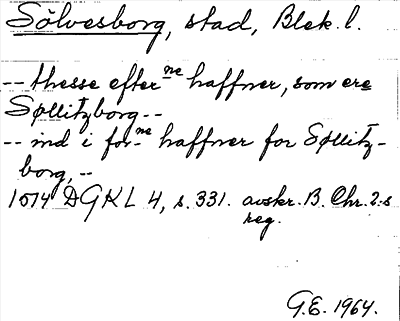 Sölvesborg, stad, Blek. l.
-- thesse efter ne haffner, som ere
Søllitzborg --
-- ind i for ne haffner for Søllitz-
borg, --
1514 DGKL 4, s. 331. avskr. B. Chr. 2:s
reg.
G.E. 1964.